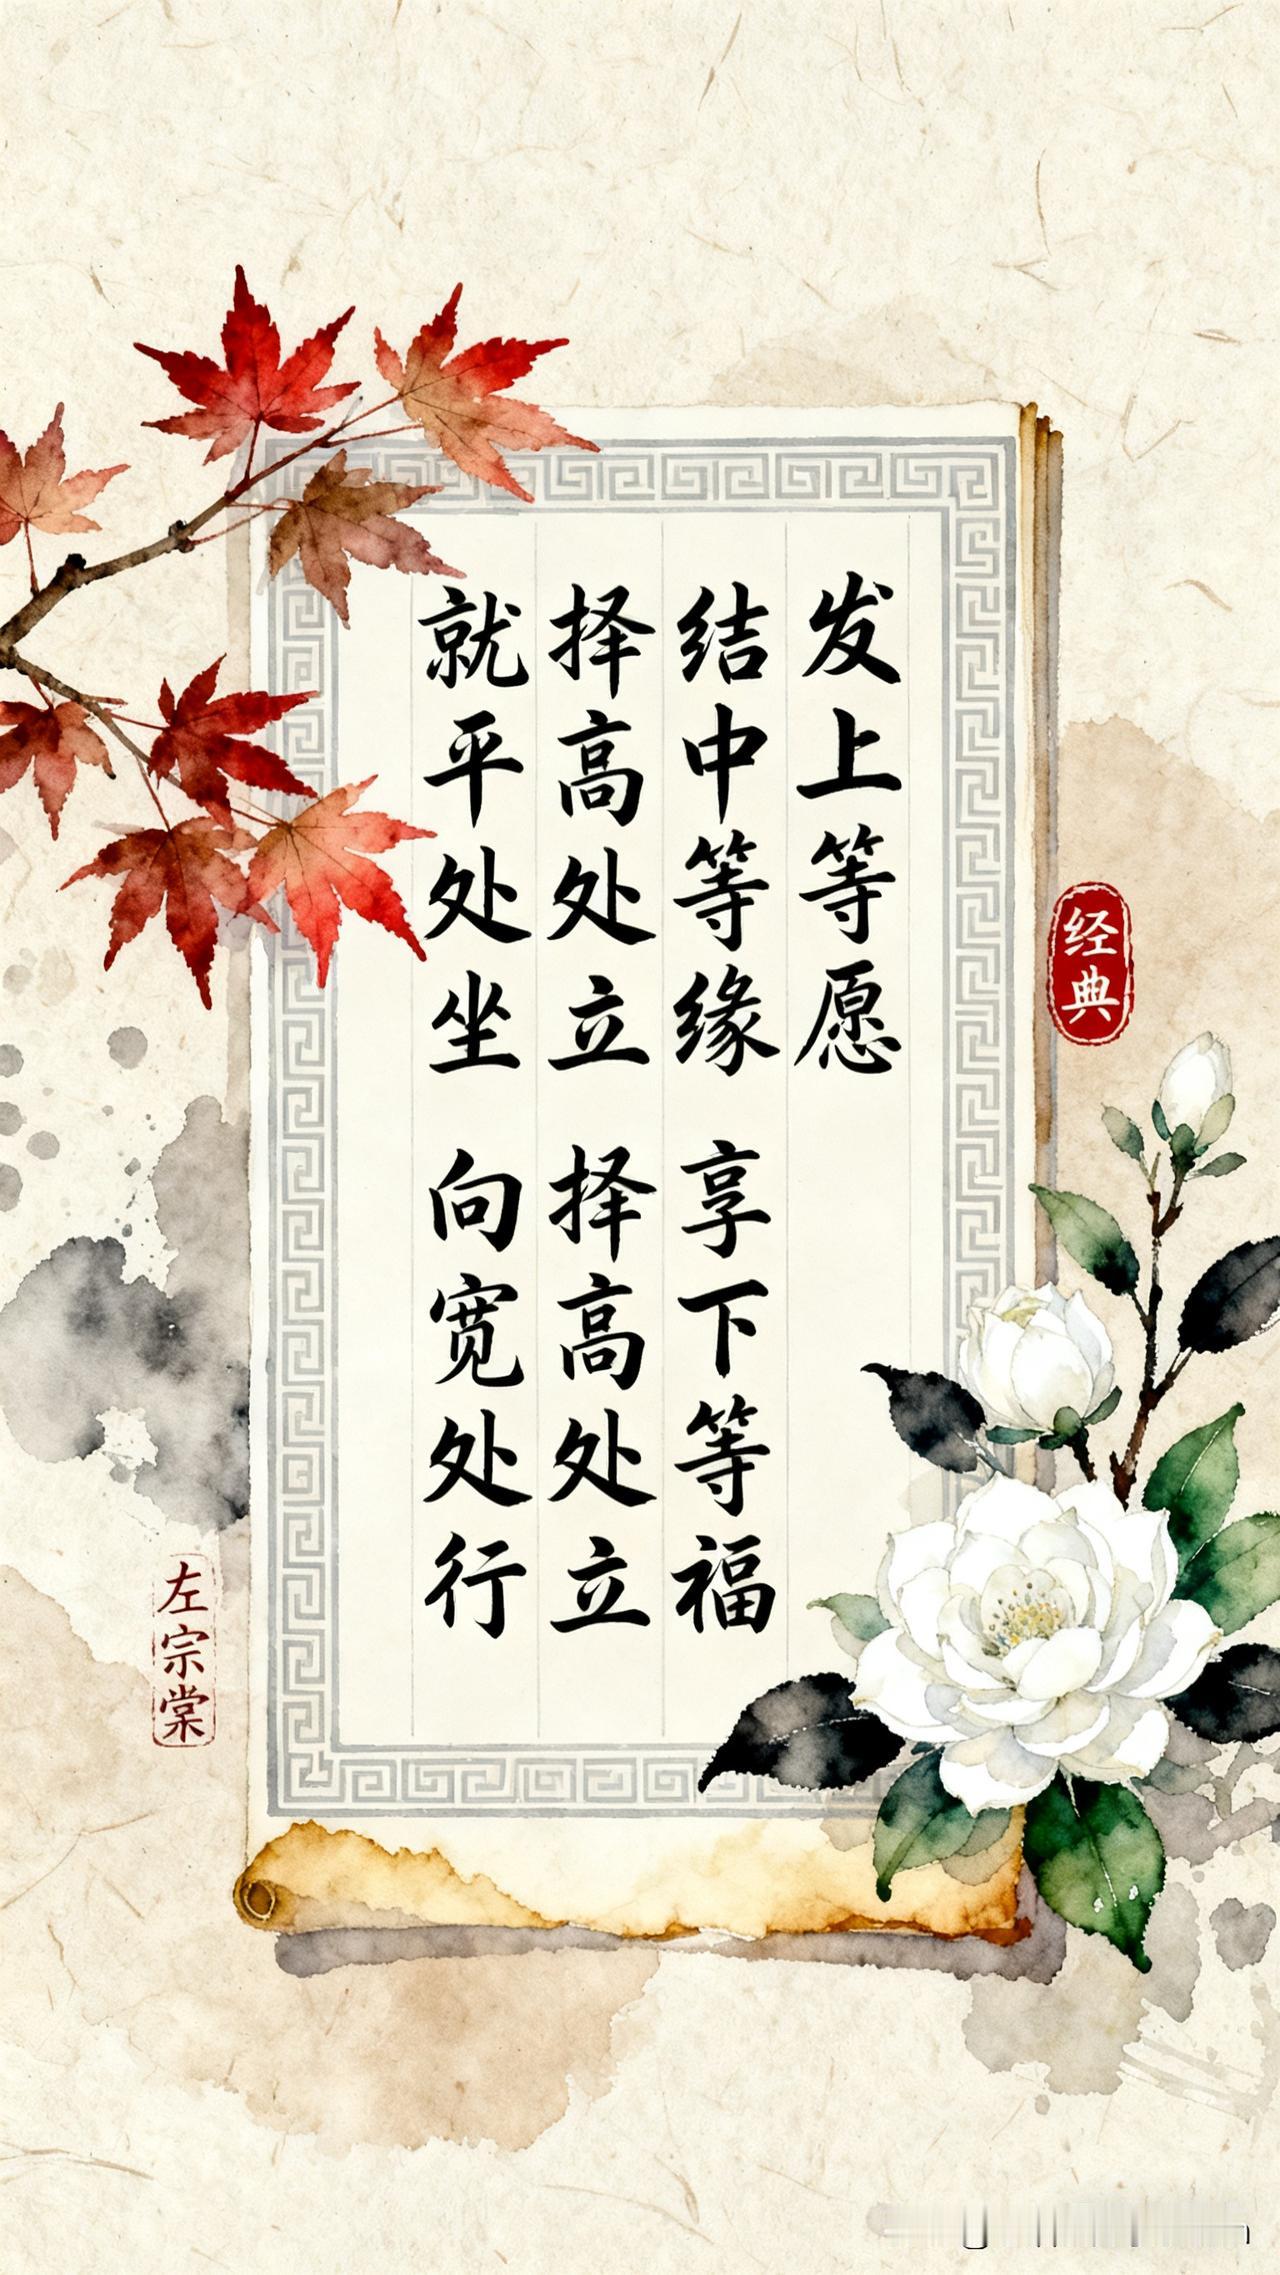 发上等愿
结中等缘 享下等福
择高处立 择高处立
就平处坐 向宽处行
经典
左宗棠